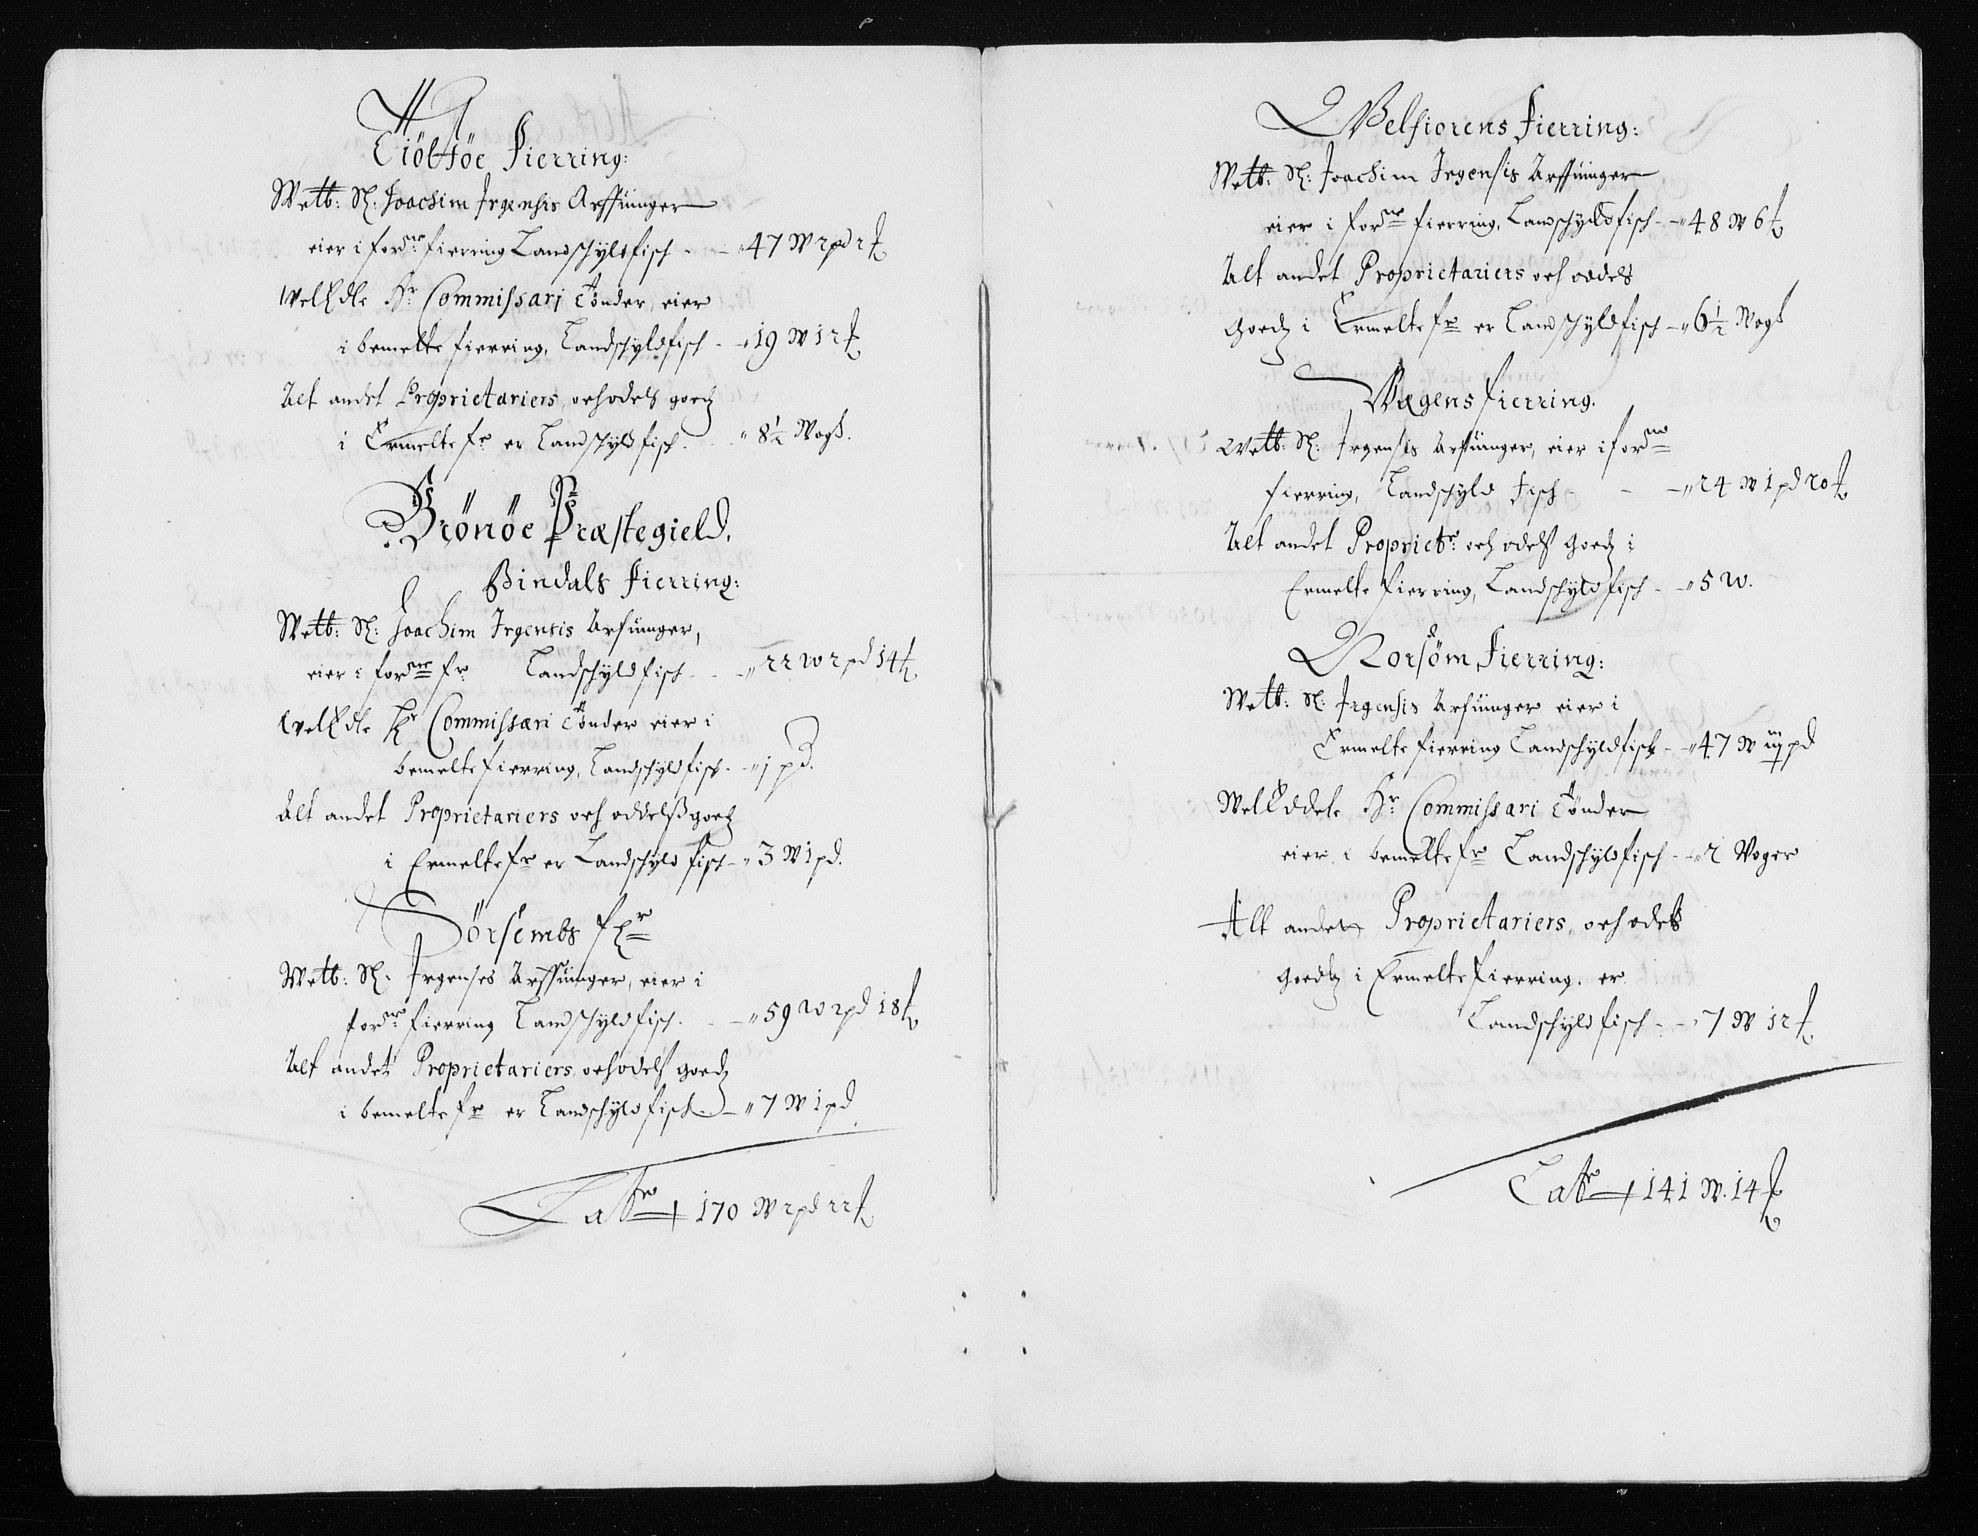 Tiöttöe Fierring:
Welb: Sl: Joachim Irgensis Arffuinger
eier i fordne fierring Landschyldfisch - - „47 W 2 pd 2 ℔
WelEdle Hr Commissari Tönder, eier
i bemelte fierring, Landschyldfisch - „19 W 12 ℔
Alt andet Proprietariers, och odels goedz
i Ermelte fr er Landschyldfisch - - „8½ Wogs.
Brönöe Præstegield.
Bindals Fierring:
Welb: Sl: Joachim Irgensis Arfuinger,
eier i fordne fr Landschyldfisch - - „22 W 2 pd 14 ℔
WelEdle Hr Commissari Tönder eier i
bemelte fierring, Landschyldfisch - „1 pd.
Alt andet Proprietariers och oddelss goedz
i Ermelte fr er Landschyld fisch - „3 W 1 pd.
Börsembs fr
Welb: Sl: Irgenses Arffuinger, eier i
fordne fierring Landschyldfisch. - „59 W 2 pd 18 ℔
Alt andet Proprietariers, och odels goedz
i bemelte fr er Landschyldfisch - „7 W 1 pd
Latr 170 W 2 pd 22 ℔
Welfiorens Fierring:
Welb: Sl: Joachim Irgensis Arffuinger
eier i fordne fierring, Landschyldfisch - „48 W 6 ℔
Alt andet Proprietariers och oddels
Goedz i Ermelte fr er Landschyldfisch - „6½ Wogs
Wægens fierring.
Welb: Sl: Irgensis Arffuinger, eier i fordne
fierring, Landschyld fisch - - „24 W 1 pd 20 ℔
Alt andet Proprietr: och odels Goedz i
Ermelte fierring, Landschyldfisch - „5 W.
Norsöm Fierring:
Welb: Sl: Irgensis Arfuinger eier i
Ermelte fierring Landschyldfisch - „47 W iij pd
WelEddele Hr Commissari Tönder
eier i bemelte fr Landschyldfisch - „2 Woger
Alt andet Proprietariers, och odels
Goedz i Ermelte fierring. er
Landschyldfisch - „7 W 12 ℔
Latr 141 W. 14 ℔